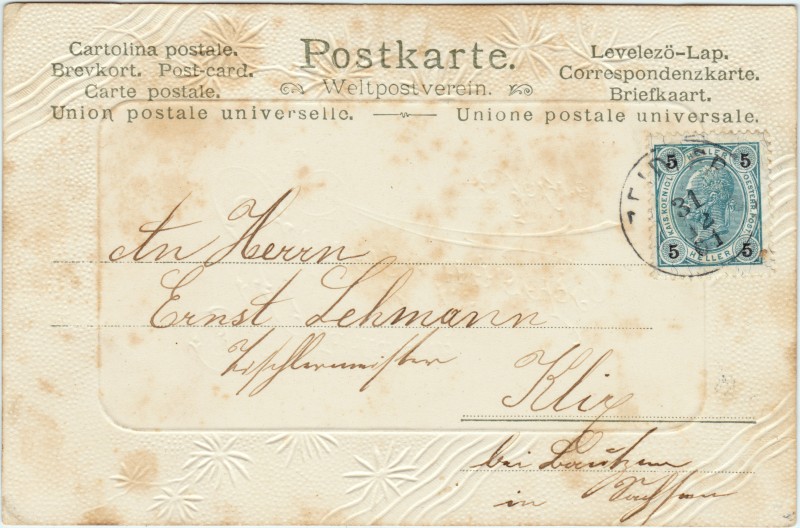 Postkarte.
Weltpostverein.
Cartolina postale.
Brevkort. Post-card.
Carte postale.
Levelező-Lap.
Correspondenzkarte.
Briefkaart.
Union postale universelle. Unione postale universale.
5 HELLER 5
KAIS. KOENIGL. OESTERR. POST
5 HELLER 5
31
12
An Herrn
Ernst Lehmann
Tischlermeister
Klix
bei Bautzen
in Sachsen